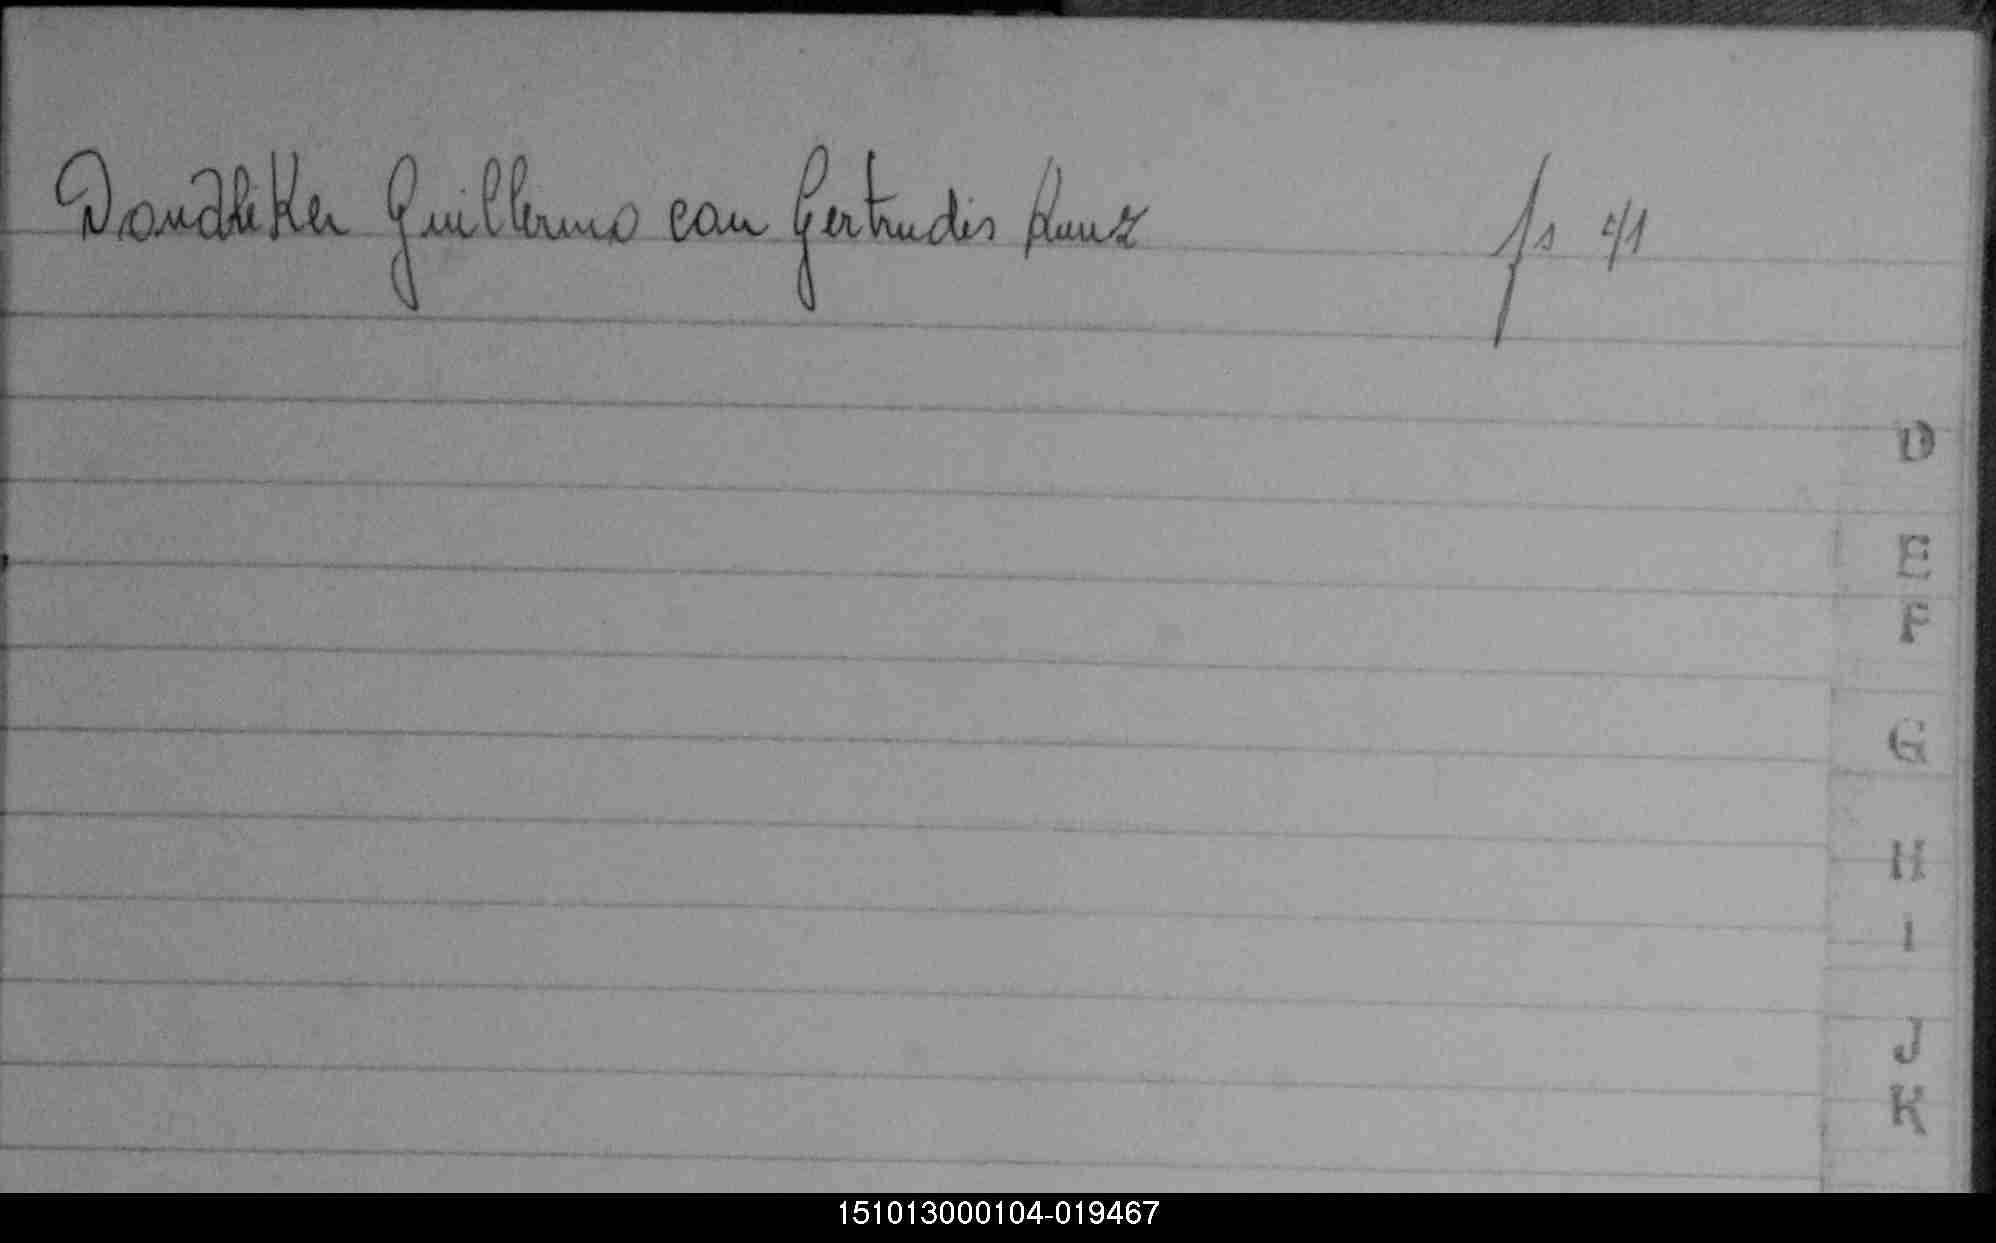 Dandliker Guillermo con Gertrudis Kunz fs 41
D
E
F
G
H
I
J
K
151013000104-019467